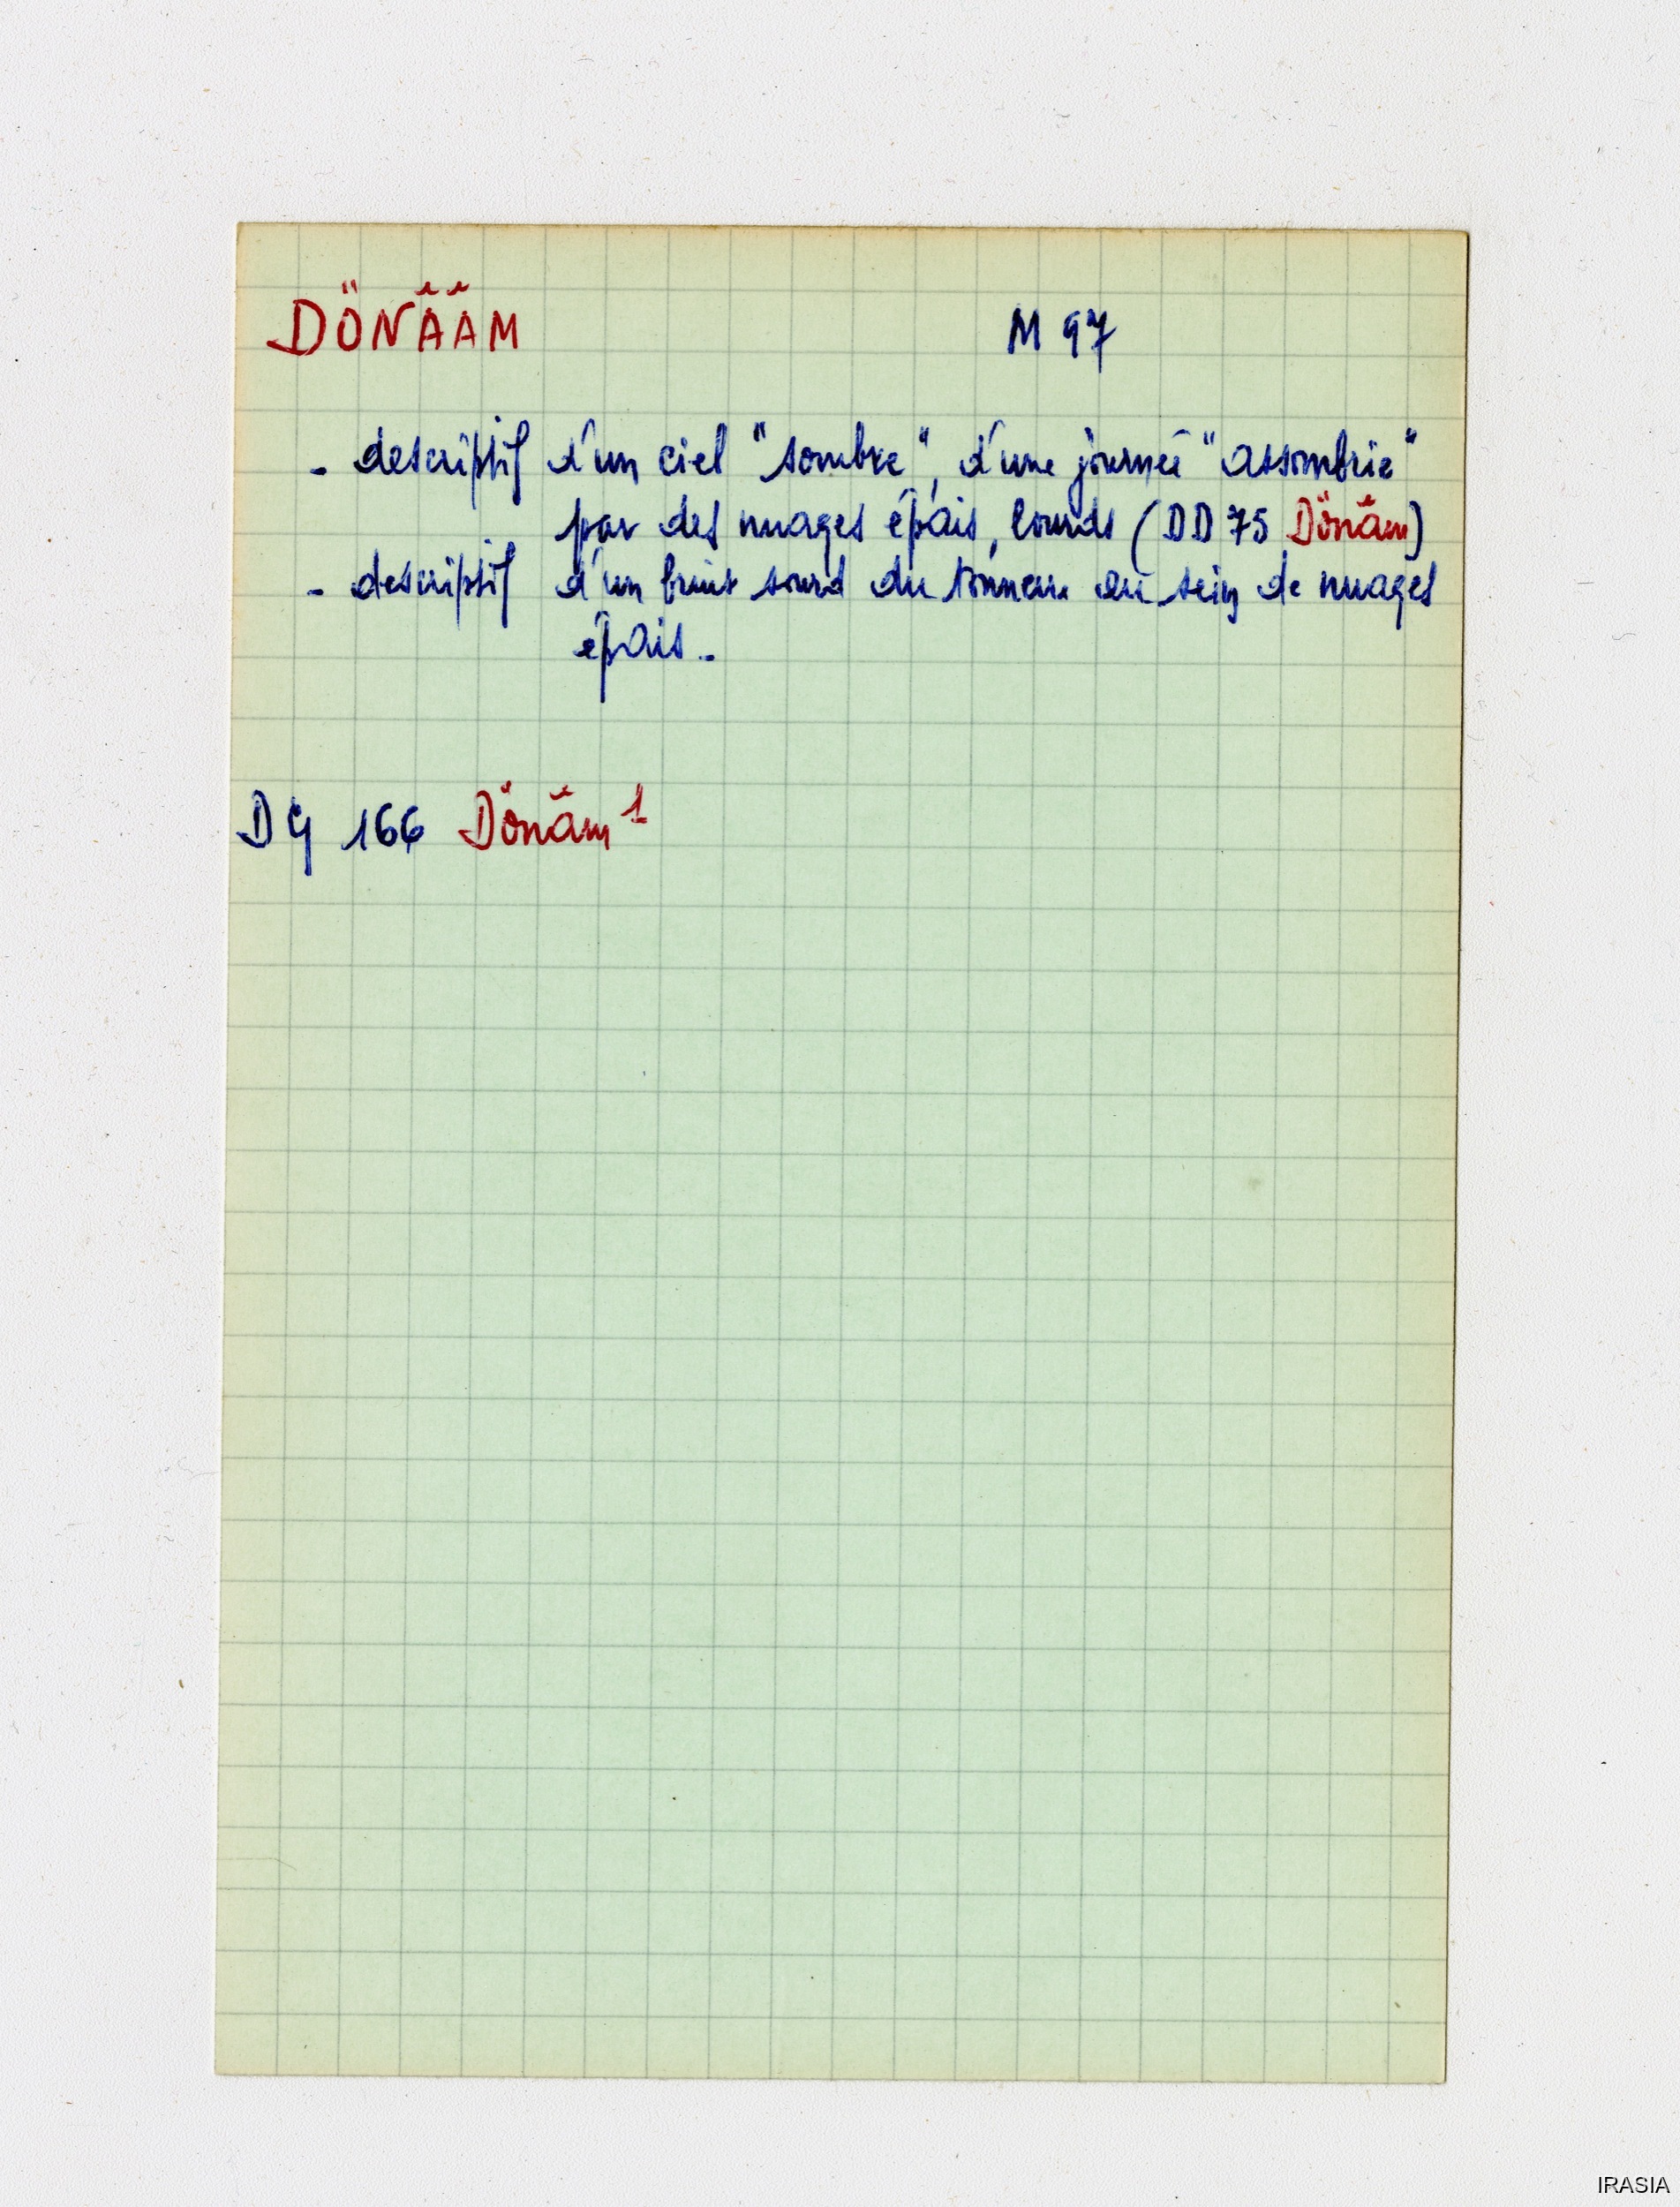 DÖNÃÃM M 97
- descriptif d'un ciel "sombre", d'une journée "assombrie"
par des nuages épais, lourds (DD 75 Dönãm)
- descriptif d'un bruit sourd du tonnerre au sein de nuages
épais.
DG 166 Dönãm 1
IRASIA